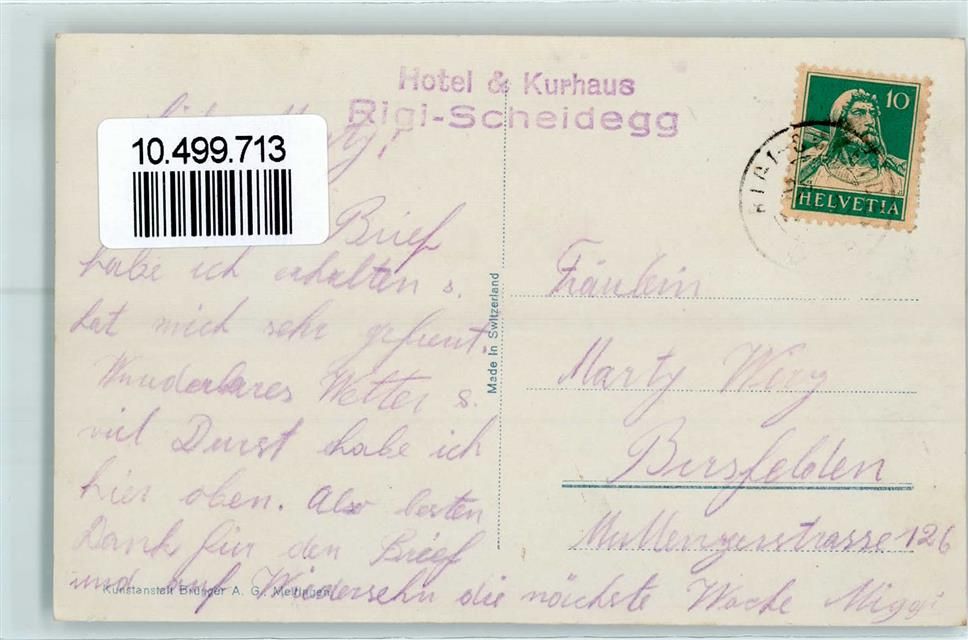 Hotel & Kurhaus
Rigi-Scheidegg
10
HELVETIA
10.499.713
Brief
habe ich erhalten u.
hat mich sehr gefreut.
Wunderbares Wetter u.
viel Durst habe ich
hier oben. Also besten
Dank für den Brief
und auf Wiedersehn die nächste Woche Miggi
Made in Switzerland
Kunstanstalt Brügger A. G., Meiringen
Fräulein
Marty
Birsfelden
Muttenzerstrasse 126